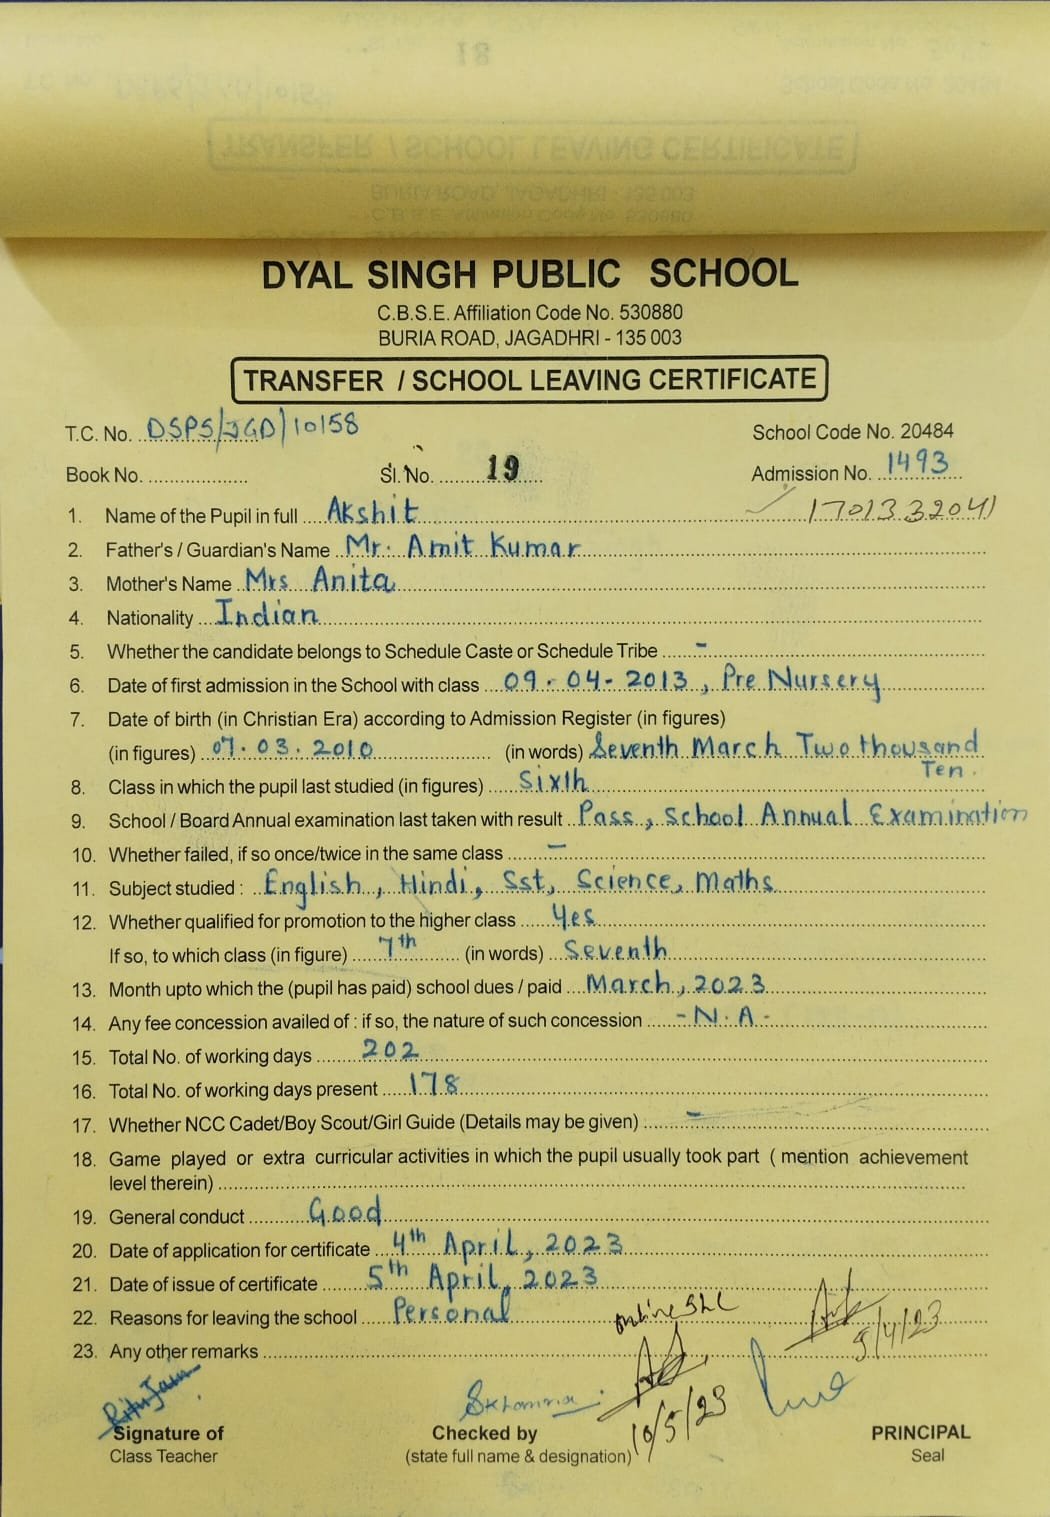 DYAL SINGH PUBLIC SCHOOL
C.B.S.E. Affiliation Code No. 530880
BURIA ROAD, JAGADHRI - 135 003
TRANSFER / SCHOOL LEAVING CERTIFICATE
T.C. No. DSPS/JGD/10158 School Code No. 20484
Book No. .................... Sl. No. 19 Admission No. 1493
1. Name of the Pupil in full Akshit 1701332041
2. Father's / Guardian's Name Mr. Amit Kumar
3. Mother's Name Mrs Anita
4. Nationality Indian
5. Whether the candidate belongs to Schedule Caste or Schedule Tribe -
6. Date of first admission in the School with class 09.04-2013, Pre Nursery
7. Date of birth (in Christian Era) according to Admission Register (in figures)
(in figures) 07.03.2010 (in words) Seventh March Two thousand
Ten.
8. Class in which the pupil last studied (in figures) Sixth
9. School / Board Annual examination last taken with result Pass, School Annual Examination
10. Whether failed, if so once/twice in the same class -
11. Subject studied : English, Hindi, Sst, Science, Maths
12. Whether qualified for promotion to the higher class Yes
If so, to which class (in figure) 7th (in words) Seventh
13. Month upto which the (pupil has paid) school dues / paid March, 2023
14. Any fee concession availed of : if so, the nature of such concession - N.A -
15. Total No. of working days 202
16. Total No. of working days present 178
17. Whether NCC Cadet/Boy Scout/Girl Guide (Details may be given) -
18. Game played or extra curricular activities in which the pupil usually took part ( mention achievement
level therein)
19. General conduct Good
20. Date of application for certificate 4th April, 2023
21. Date of issue of certificate 5th April, 2023
22. Reasons for leaving the school Personal online SLC
23. Any other remarks 5/4/23
Ritu Jain
10/5/23
Signature of Checked by PRINCIPAL
Class Teacher (state full name & designation) Seal